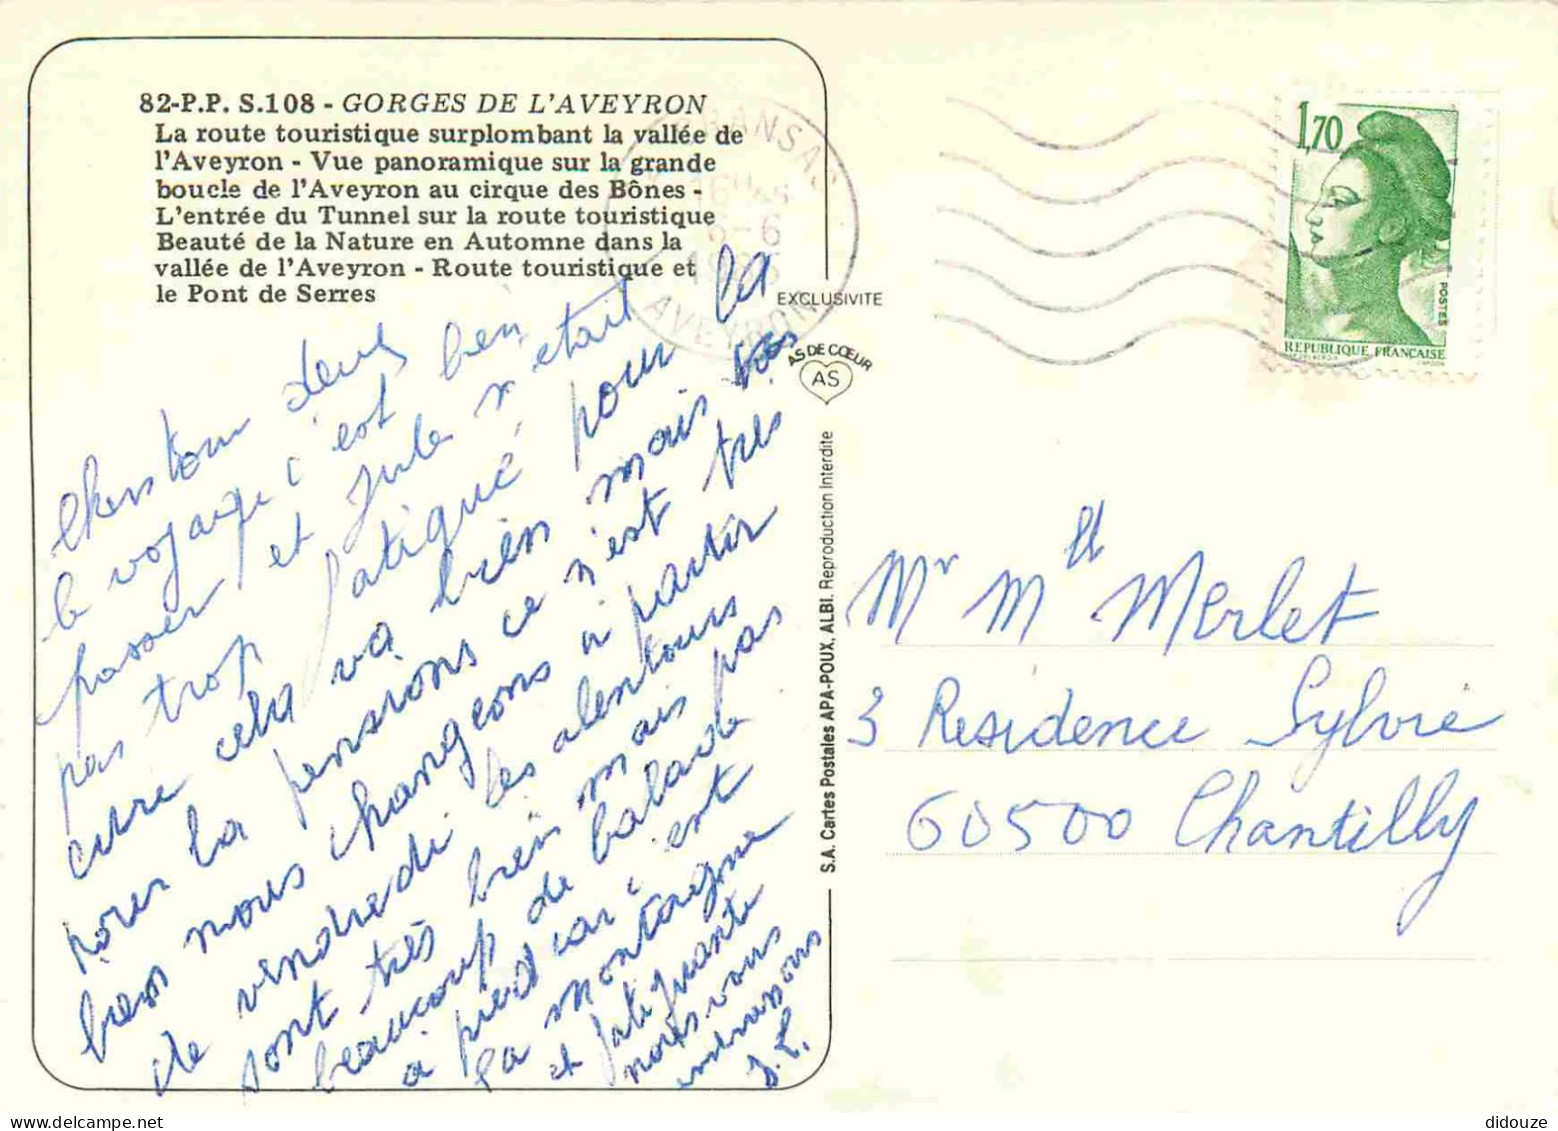 82-P.P. S.108 - GORGES DE L'AVEYRON
La route touristique surplombant la vallée de
l'Aveyron - Vue panoramique sur la grande
boucle de l'Aveyron au cirque des Bônes -
L'entrée du Tunnel sur la route touristique
Beauté de la Nature en Automne dans la
vallée de l'Aveyron - Route touristique et
le Pont de Serres
CRANSAC
16H45
6-6
AVEYRON
1,70
POSTES
REPUBLIQUE FRANÇAISE
EXCLUSIVITE
AS DE CŒUR
AS
S.A. Cartes Postales APA-POUX, ALBI. Reproduction Interdite
deux
le voyage c'est bien
passer et Jule n'etait
pas trop fatigué pour la
cure cela va bien mais
pour la pensions ce n'est tres
bien nous changeons a partir
de vendredi les alentours
sont très bien mais pas
beaucoup de balade
a pied car c'est
la montagne
et fatiguante
nous vous
embrassons
Mr Mlle Merlet
3 Residence Sylvie
60500 Chantilly
didouze